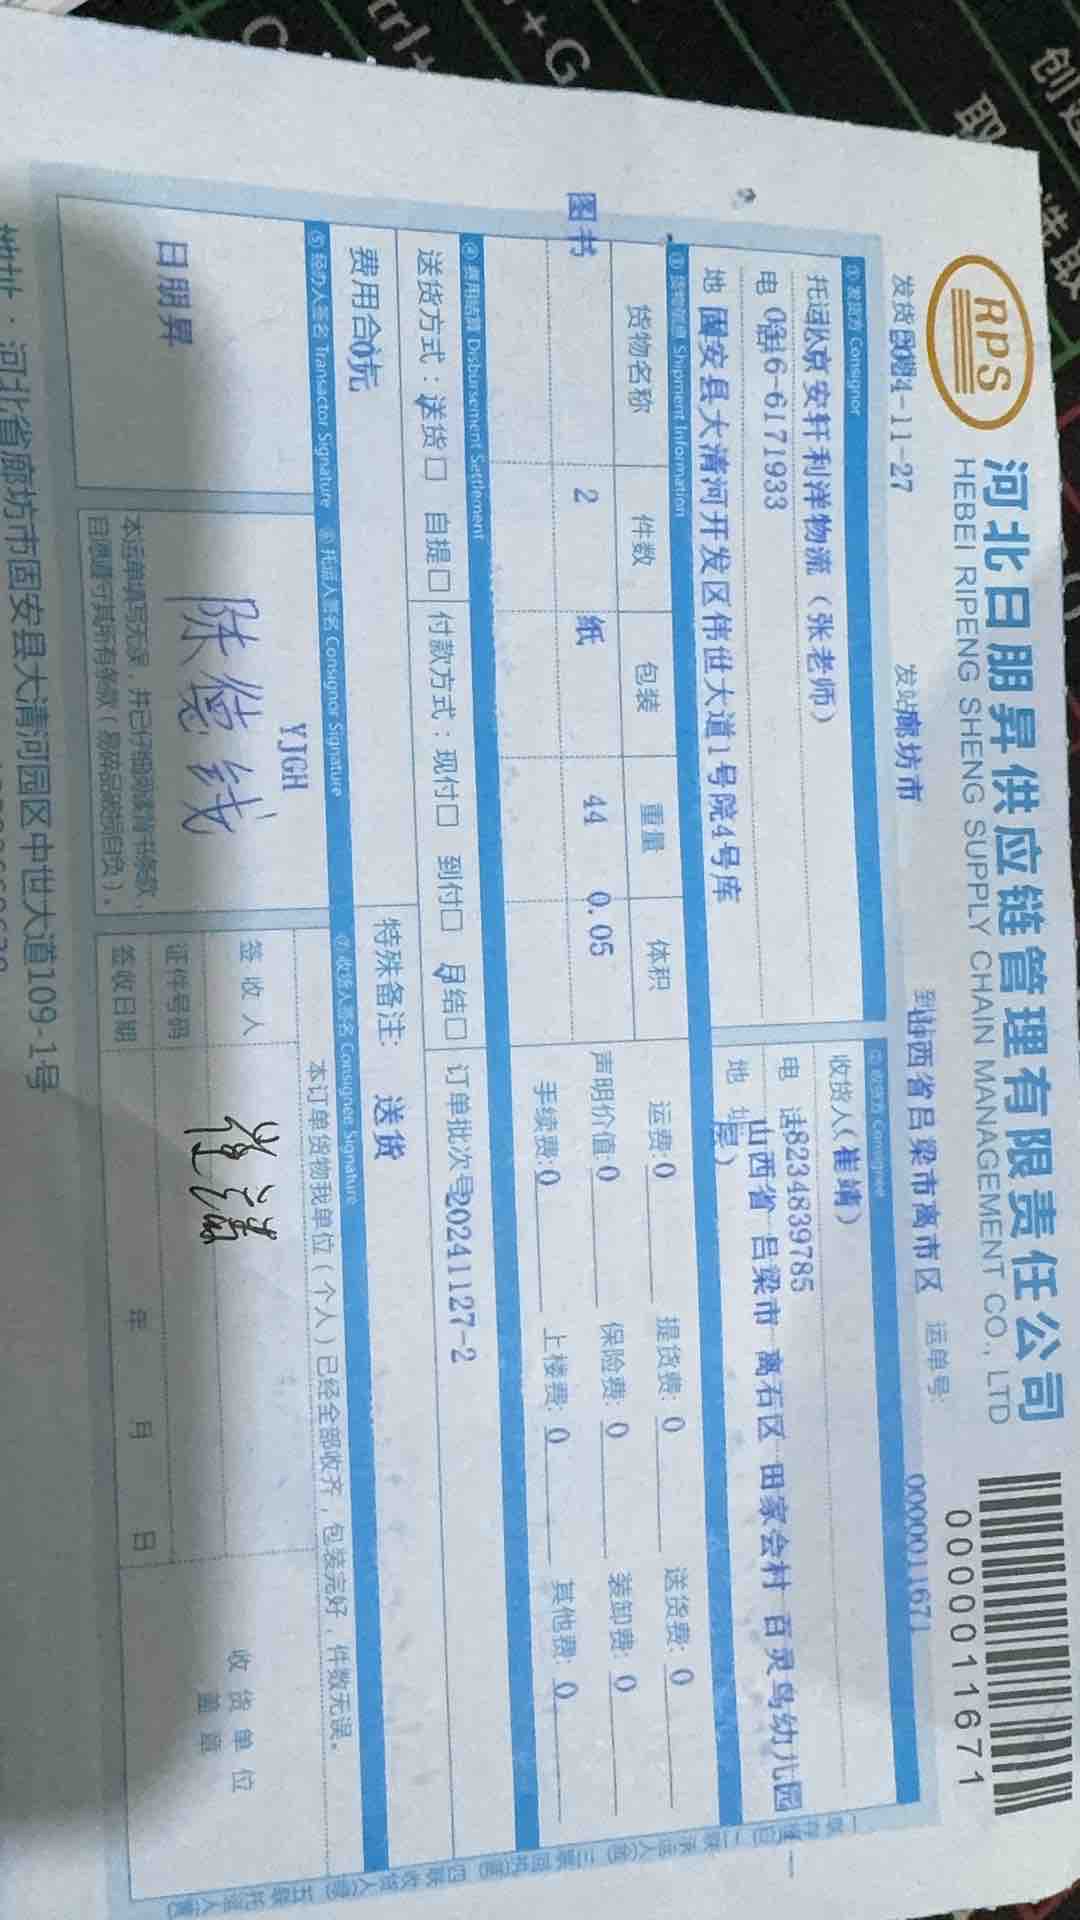 RPS
河北日朋昇供应链管理有限责任公司
HEBEI RIPENG SHENG SUPPLY CHAIN MANAGEMENT CO., LTD
0000011671
发货日期2024-11-27 发站廊坊市 到站山西省吕梁市离市区 运单号: 0000011671
① 发货方 Consignor
② 收货方 Consignee
托运人京安轩利洋物流（张老师）
收货人（崔靖）
电 话 6-6171933
电 话18234839785
地 固安县大清河开发区伟世大道1号院4号库
地 址 山西省 吕梁市 离石区 田家会村 百灵鸟幼儿园
③ 货物信息 Shipment Information
货物名称 件数 包装 重量 体积
图书 2 纸 44 0.05
运费:0 提货费: 0 送货费: 0
声明价值:0 保险费: 0 装卸费: 0
手续费:0 上楼费: 0 其他费: 0
④ 费用结算 Disbursement Settlement
送货方式：送货□ 自提□ 付款方式：现付□ 到付□ 月结□ 订单批次号20241127-2
费用合 0元
特殊备注: 送货
⑤ 经办人签名 Transactor Signature
⑥ 托运人签名 Consignor Signature
⑦ 收货人签名 Consignee Signature
日朋昇
YJGH
本订单货物我单位（个人）已经全部收齐，包装完好，件数无误。
签收人
证件号码
签收日期 年 月 日
收货单位
盖章
本运单填写无误，并已仔细阅读背书条款，
自愿遵守其所有条款（易碎品破损自负）。
地址：河北省廊坊市固安县大清河园区中世大道109-1号
Ctrl+G
创造
取
选取